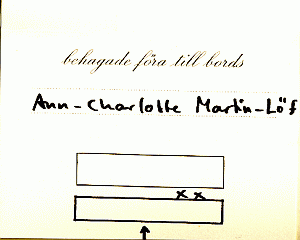 behagade föra till bords
Ann-Charlotte Martin-Löf
xx